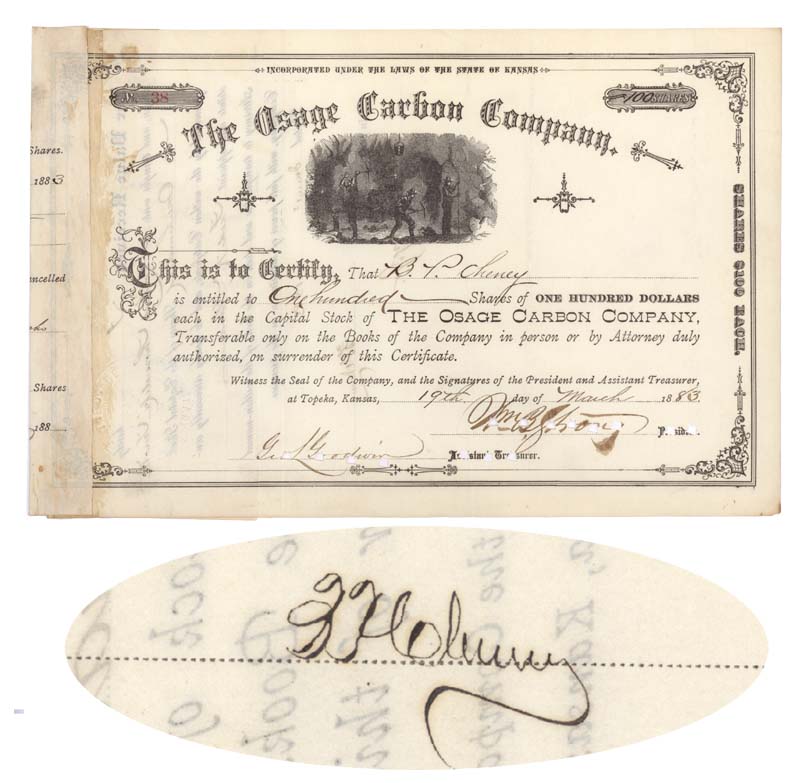 INCORPORATED UNDER THE LAWS OF THE STATE OF KANSAS
No. 38
100 SHARES
The Osage Carbon Company.
Shares.
1883
ncelled
Shares
188
SHARES $100 EACH.
This is to Certify, That B. P. Cheney
is entitled to One hundred Shares of ONE HUNDRED DOLLARS
each in the Capital Stock of THE OSAGE CARBON COMPANY,
Transferable only on the Books of the Company in person or by Attorney duly
authorized, on surrender of this Certificate.
Witness the Seal of the Company, and the Signatures of the President and Assistant Treasurer,
at Topeka, Kansas, 19th day of March 1883.
Wm B Strong President.
Geo L Goodwin Assistant Treasurer.
B P Cheney